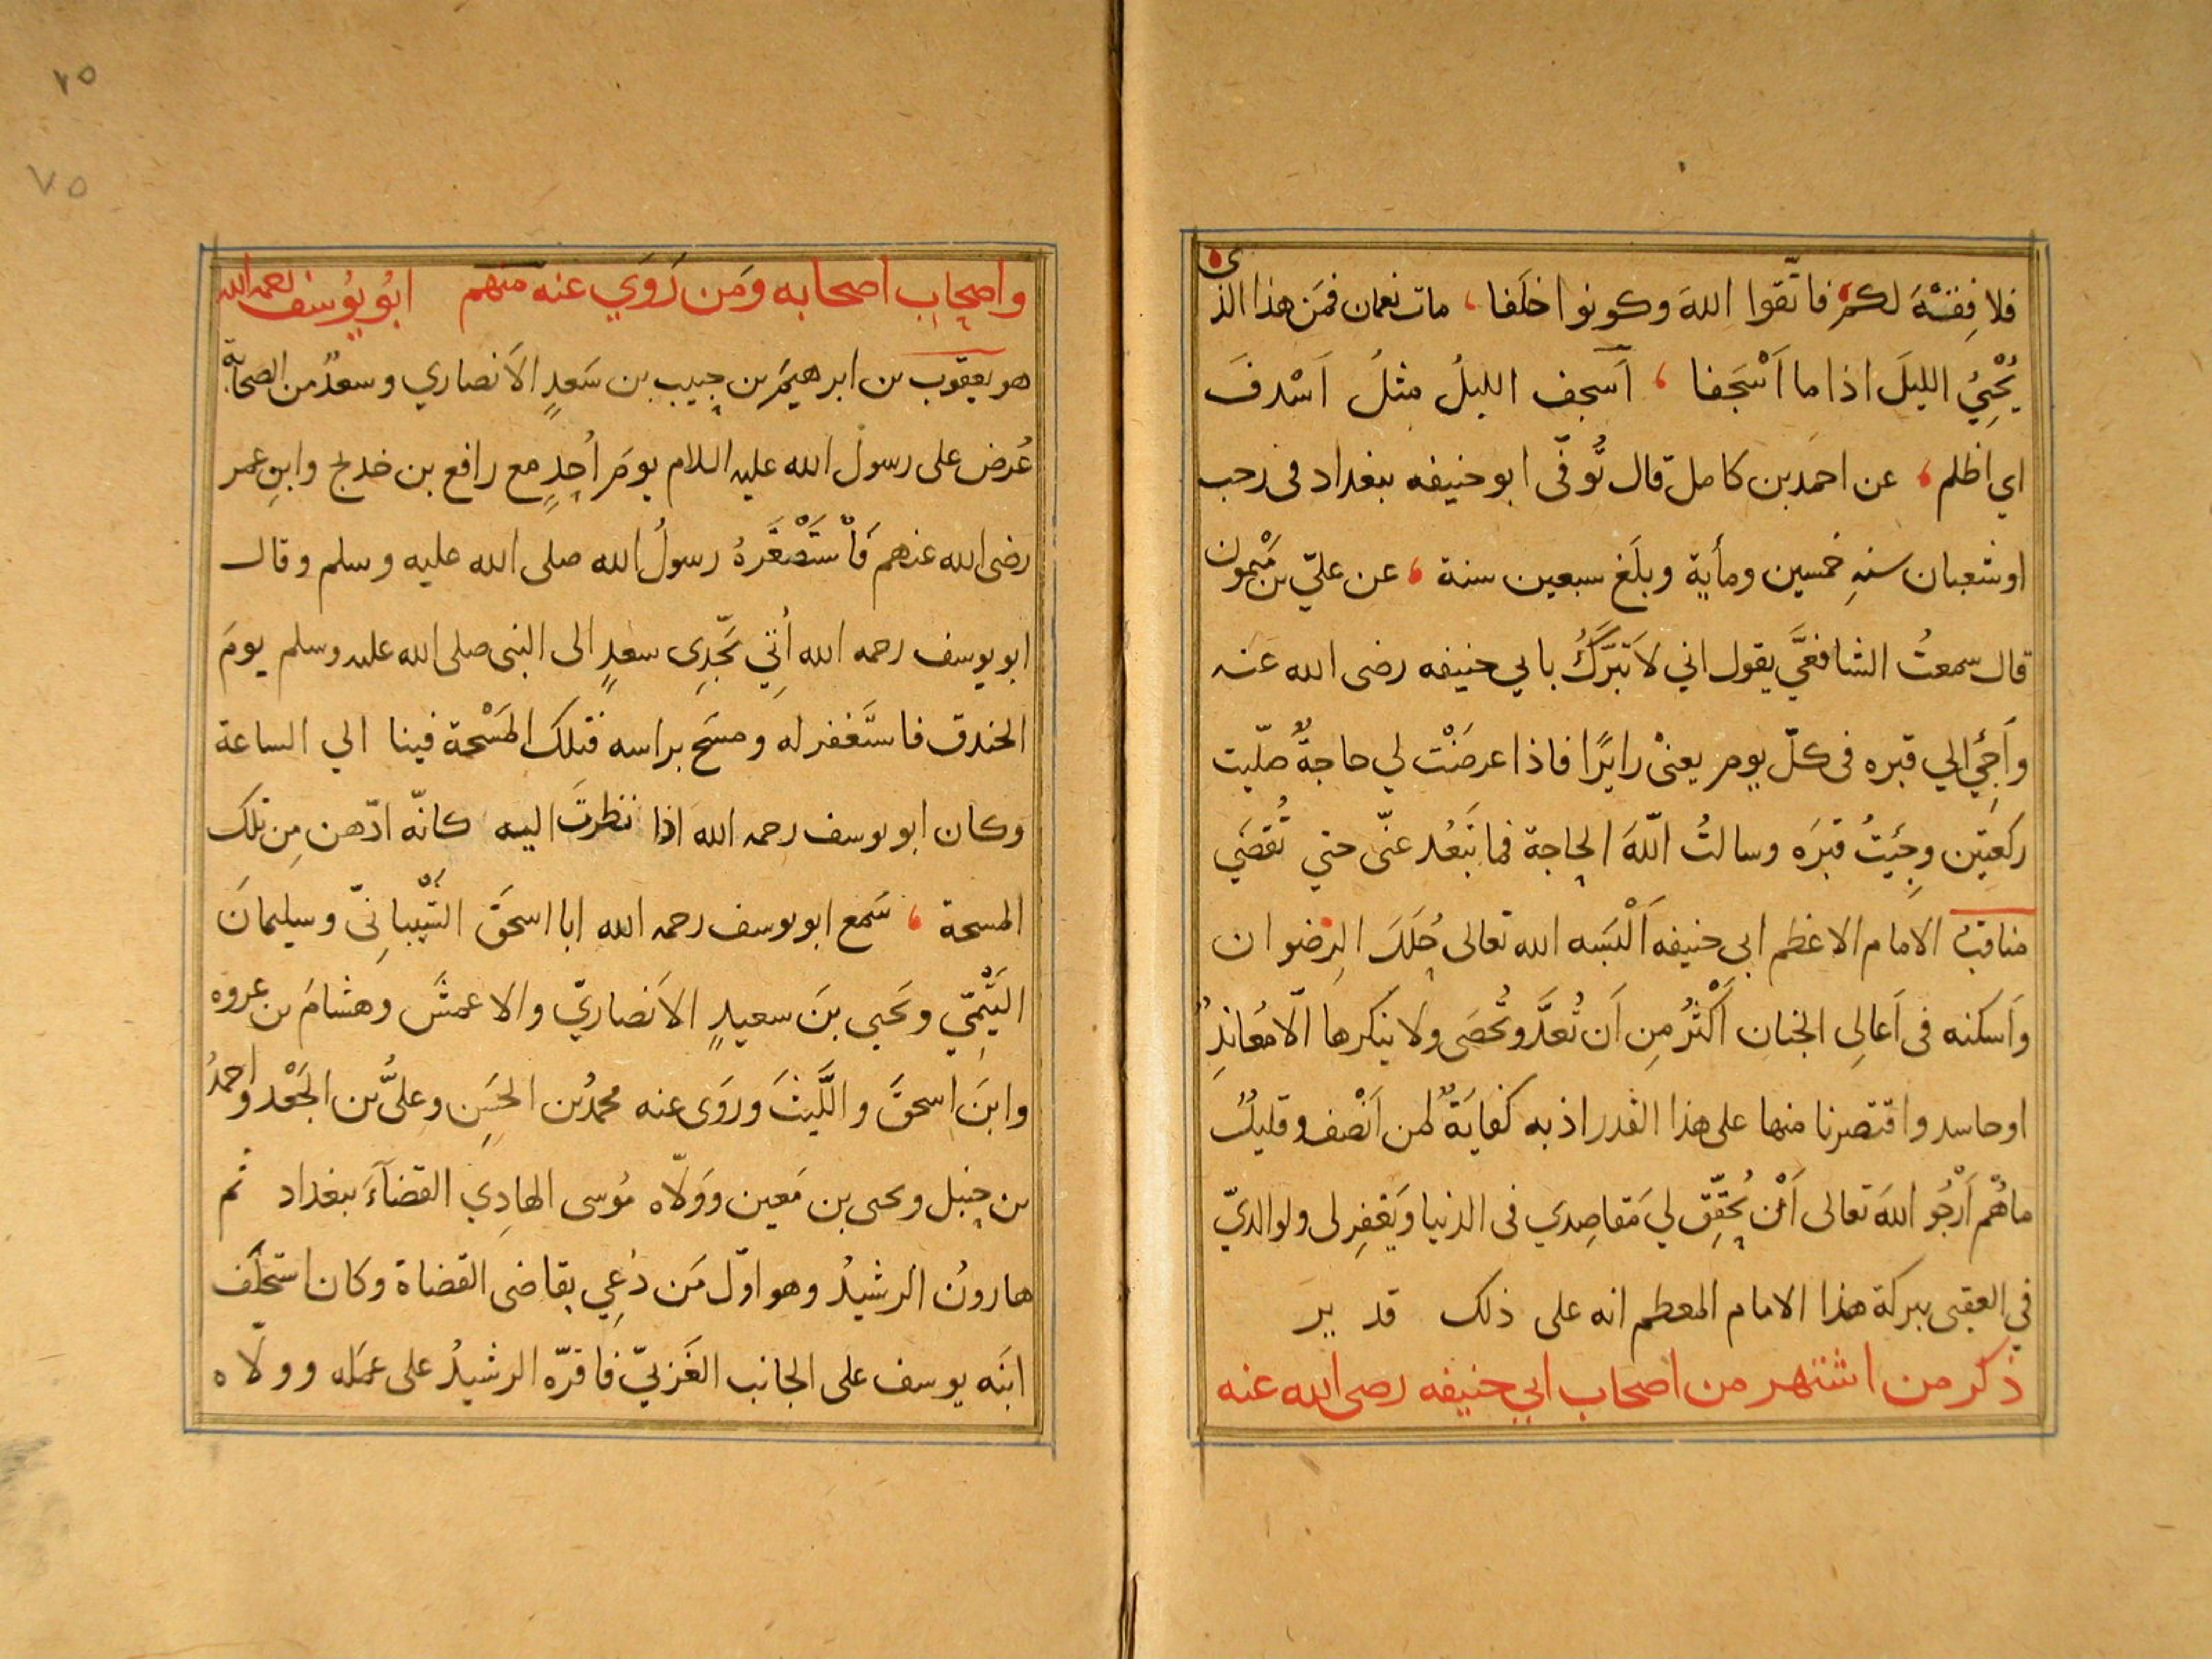 فلا فِقْهَ لكمْ فاتّقوا اللهَ وكونوا خلَفا ، مات نعمان فمَن هذا الذى
يُحْيِيُ الليلَ اذا ما اَسْجَفا ، اَسجف الليلُ مثلُ اَسْدفَ
اي اظلم ، عن احمَد بن كامل قال تُوفّى ابو حنيفه ببغداد فى رجب
او شعبان سنهِ خمسين ومأية وبلَغ سبعين سنة ، عن عليّ بن مَيْمون
قال سمعتُ الشافعيَّ يقول اني لاَتَبرَّكُ بابي حنيفه رضى الله عَنه
واَجِئُ الي قبره فى كلّ يومٍ يعنىْ زايرًا فاذا عرضَتْ لي حاجةٌ صلّيت
ركعتَين وجِئيتُ قبرَه وسالتُ اللّهَ الحاجة فما تَبعُد عنّى حتي تُقضَي
مناقبُ الامام الاعظم ابى حنيفه اَلْبسَه الله تعالى حُلَلَ الرضوان
واَسكنه فى اَعالِى الجنان اَكْثرُ مِن اَن تُعدَّ وتُحصَى ولا ينكرها الّا مُعاندٌ
او حاسد واقتصرنا منها على هذا القدر اذ به كفايَةٌ لمن اَنْصف وقليلٌ
ما هُم اَرْجُو اللهَ تعالى اَنْ يُحقِّق لي مَقاصِدي فى الدنيا ويَغفِر لى ولوالديّ
في العقبى ببركة هذا الامام المعظم انه على ذلك قدير
ذكر من اشتهر من اصحاب ابي حنيفه رضى الله عنه
واصحاب اصحابه ومَن رَوَي عنه منهم ابُو يُوسف رحمه الله
هو يعقوب بن ابرهيمَ بن حبيب بن سَعدٍ الاَنصاري وسعدٌ من الصحابة
عُرض على رسول الله عليه السلام يومَ اُحدٍ مع رافع بن خديج وابنِ عمر
رضى الله عنهم فَاْستَصْغَرهُ رسولُ الله صلى الله عليه وسلم وقال
ابو يوسف رحمه الله اُتِي بجّدِى سعدٍ الى النبى صلى الله عليه وسلم يومَ
الخندق فاستَغفر له ومسَح براسه فتلك المَسْحة فينا الي الساعة
وكان ابو يوسف رحمه الله اذا نظرتَ اليه كانّه ادّهن مِن تلك
المسحة ، سَمع ابو يوسف رحمه الله ابا اسحَقَ الشّيْبانِىّ وسليمانَ
التَيْمِيّ ويَحيي بنَ سعيدٍ الاَنصاريّ والاعمشَ وهشامَ بن عروه
وابنَ اسحقَ والَّليثَ ورَوَى عنه محمدُ بن الحسَنِ وعلىُّ بن الجَعْد واحمدُ
بن حنبل ويحيى بن مَعين ووَلّاه مُوسى الهادِي القضآءَ ببغداد ثم
هارونُ الرشيدُ وهو اوّل مَن دُعِي بقاضى القضاة وكان استخلَف
ابنَه يوسف على الجانب الغَربيّ فاقرّه الرشيدُ على عمَله وولّاه
٧٥
٧٥